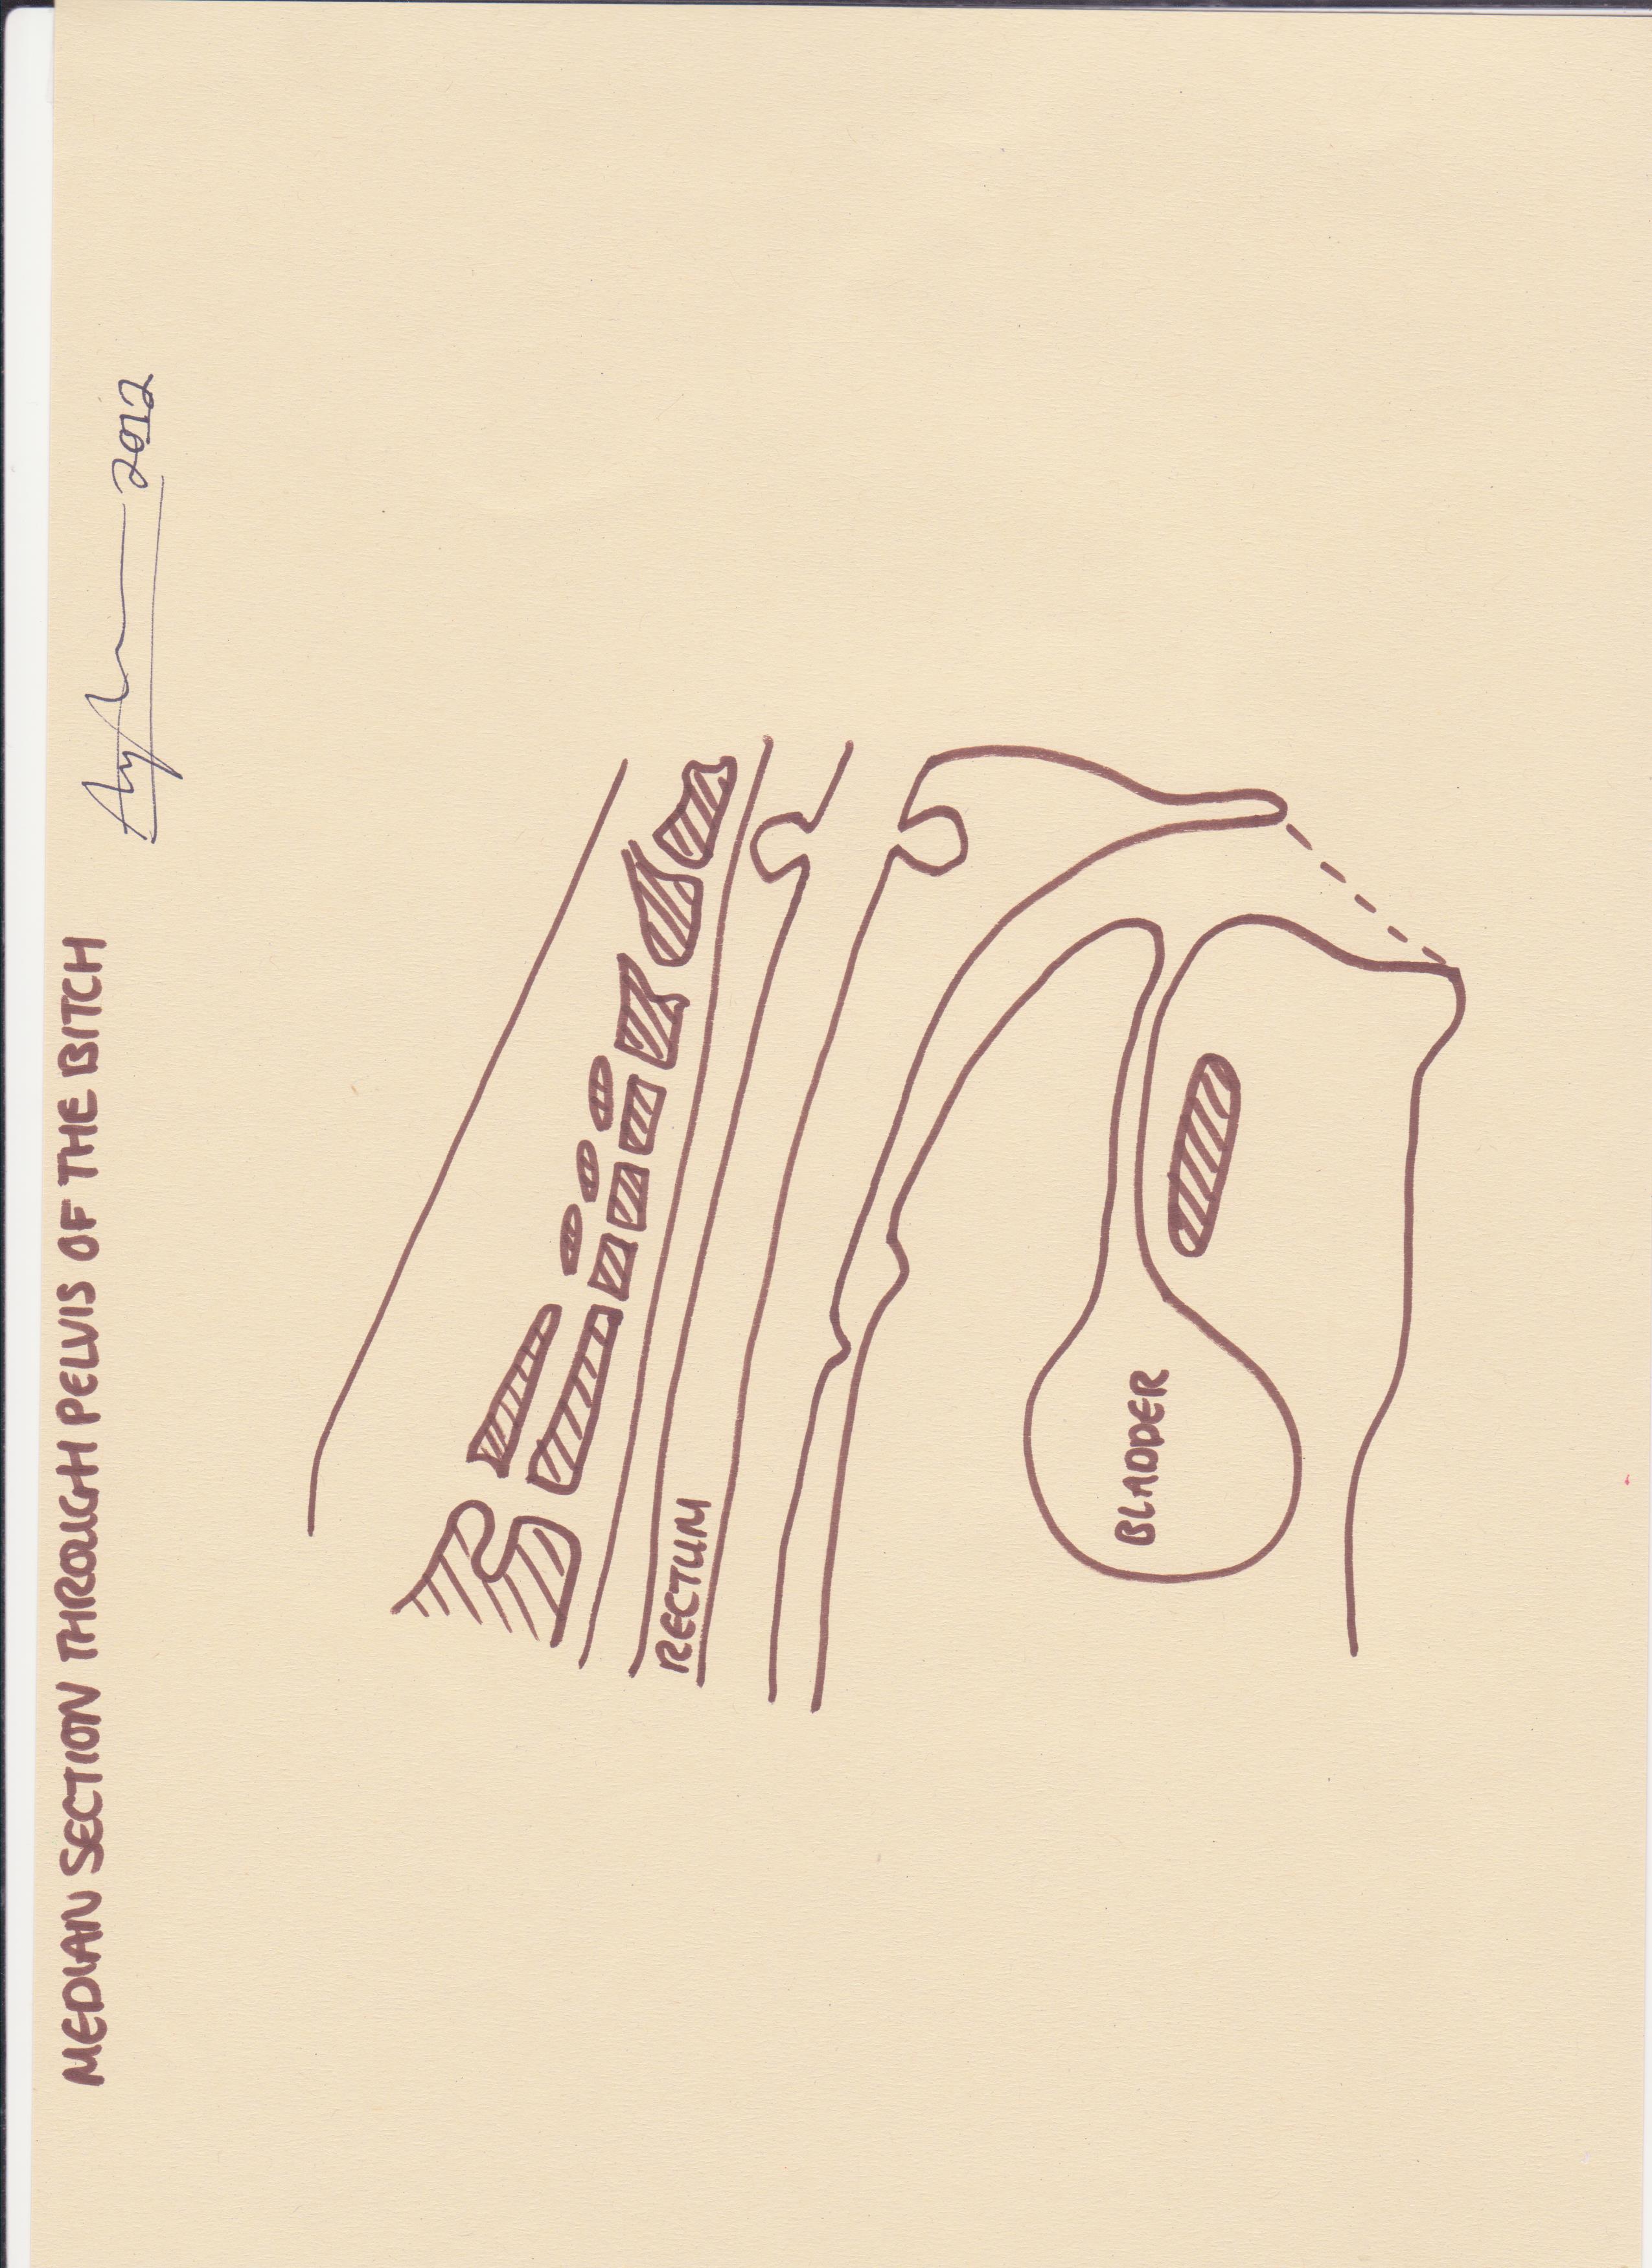 MEDIAN SECTION THROUGH PELVIS OF THE BITCH
2012
RECTUM
BLADDER